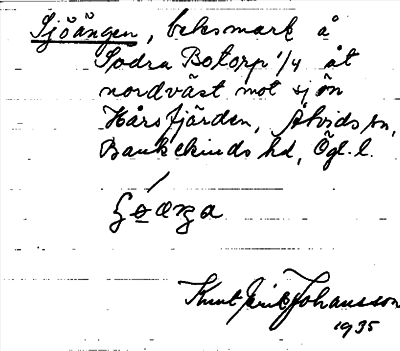 Sjöängen, beksmark å
Södra Botorp 1/4 åt
nordväst mot sjön
Hårsfjärden, Åtvids sn,
Bankekinds hd, Ögl. l.
Knut Erik Johansson
1935